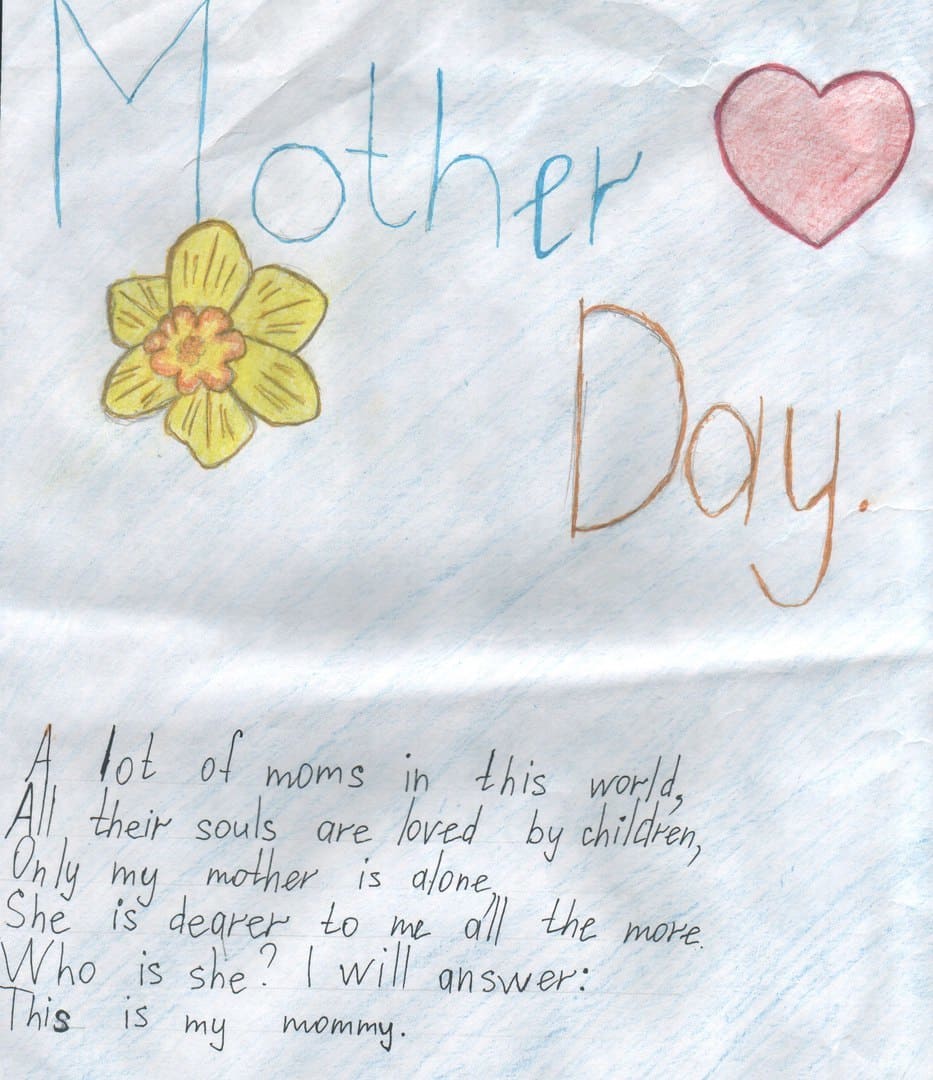 Mother
Day.
A lot of moms in this world,
All their souls are loved by children,
Only my mother is alone,
She is dearer to me all the more.
Who is she? I will answer:
This is my mommy.